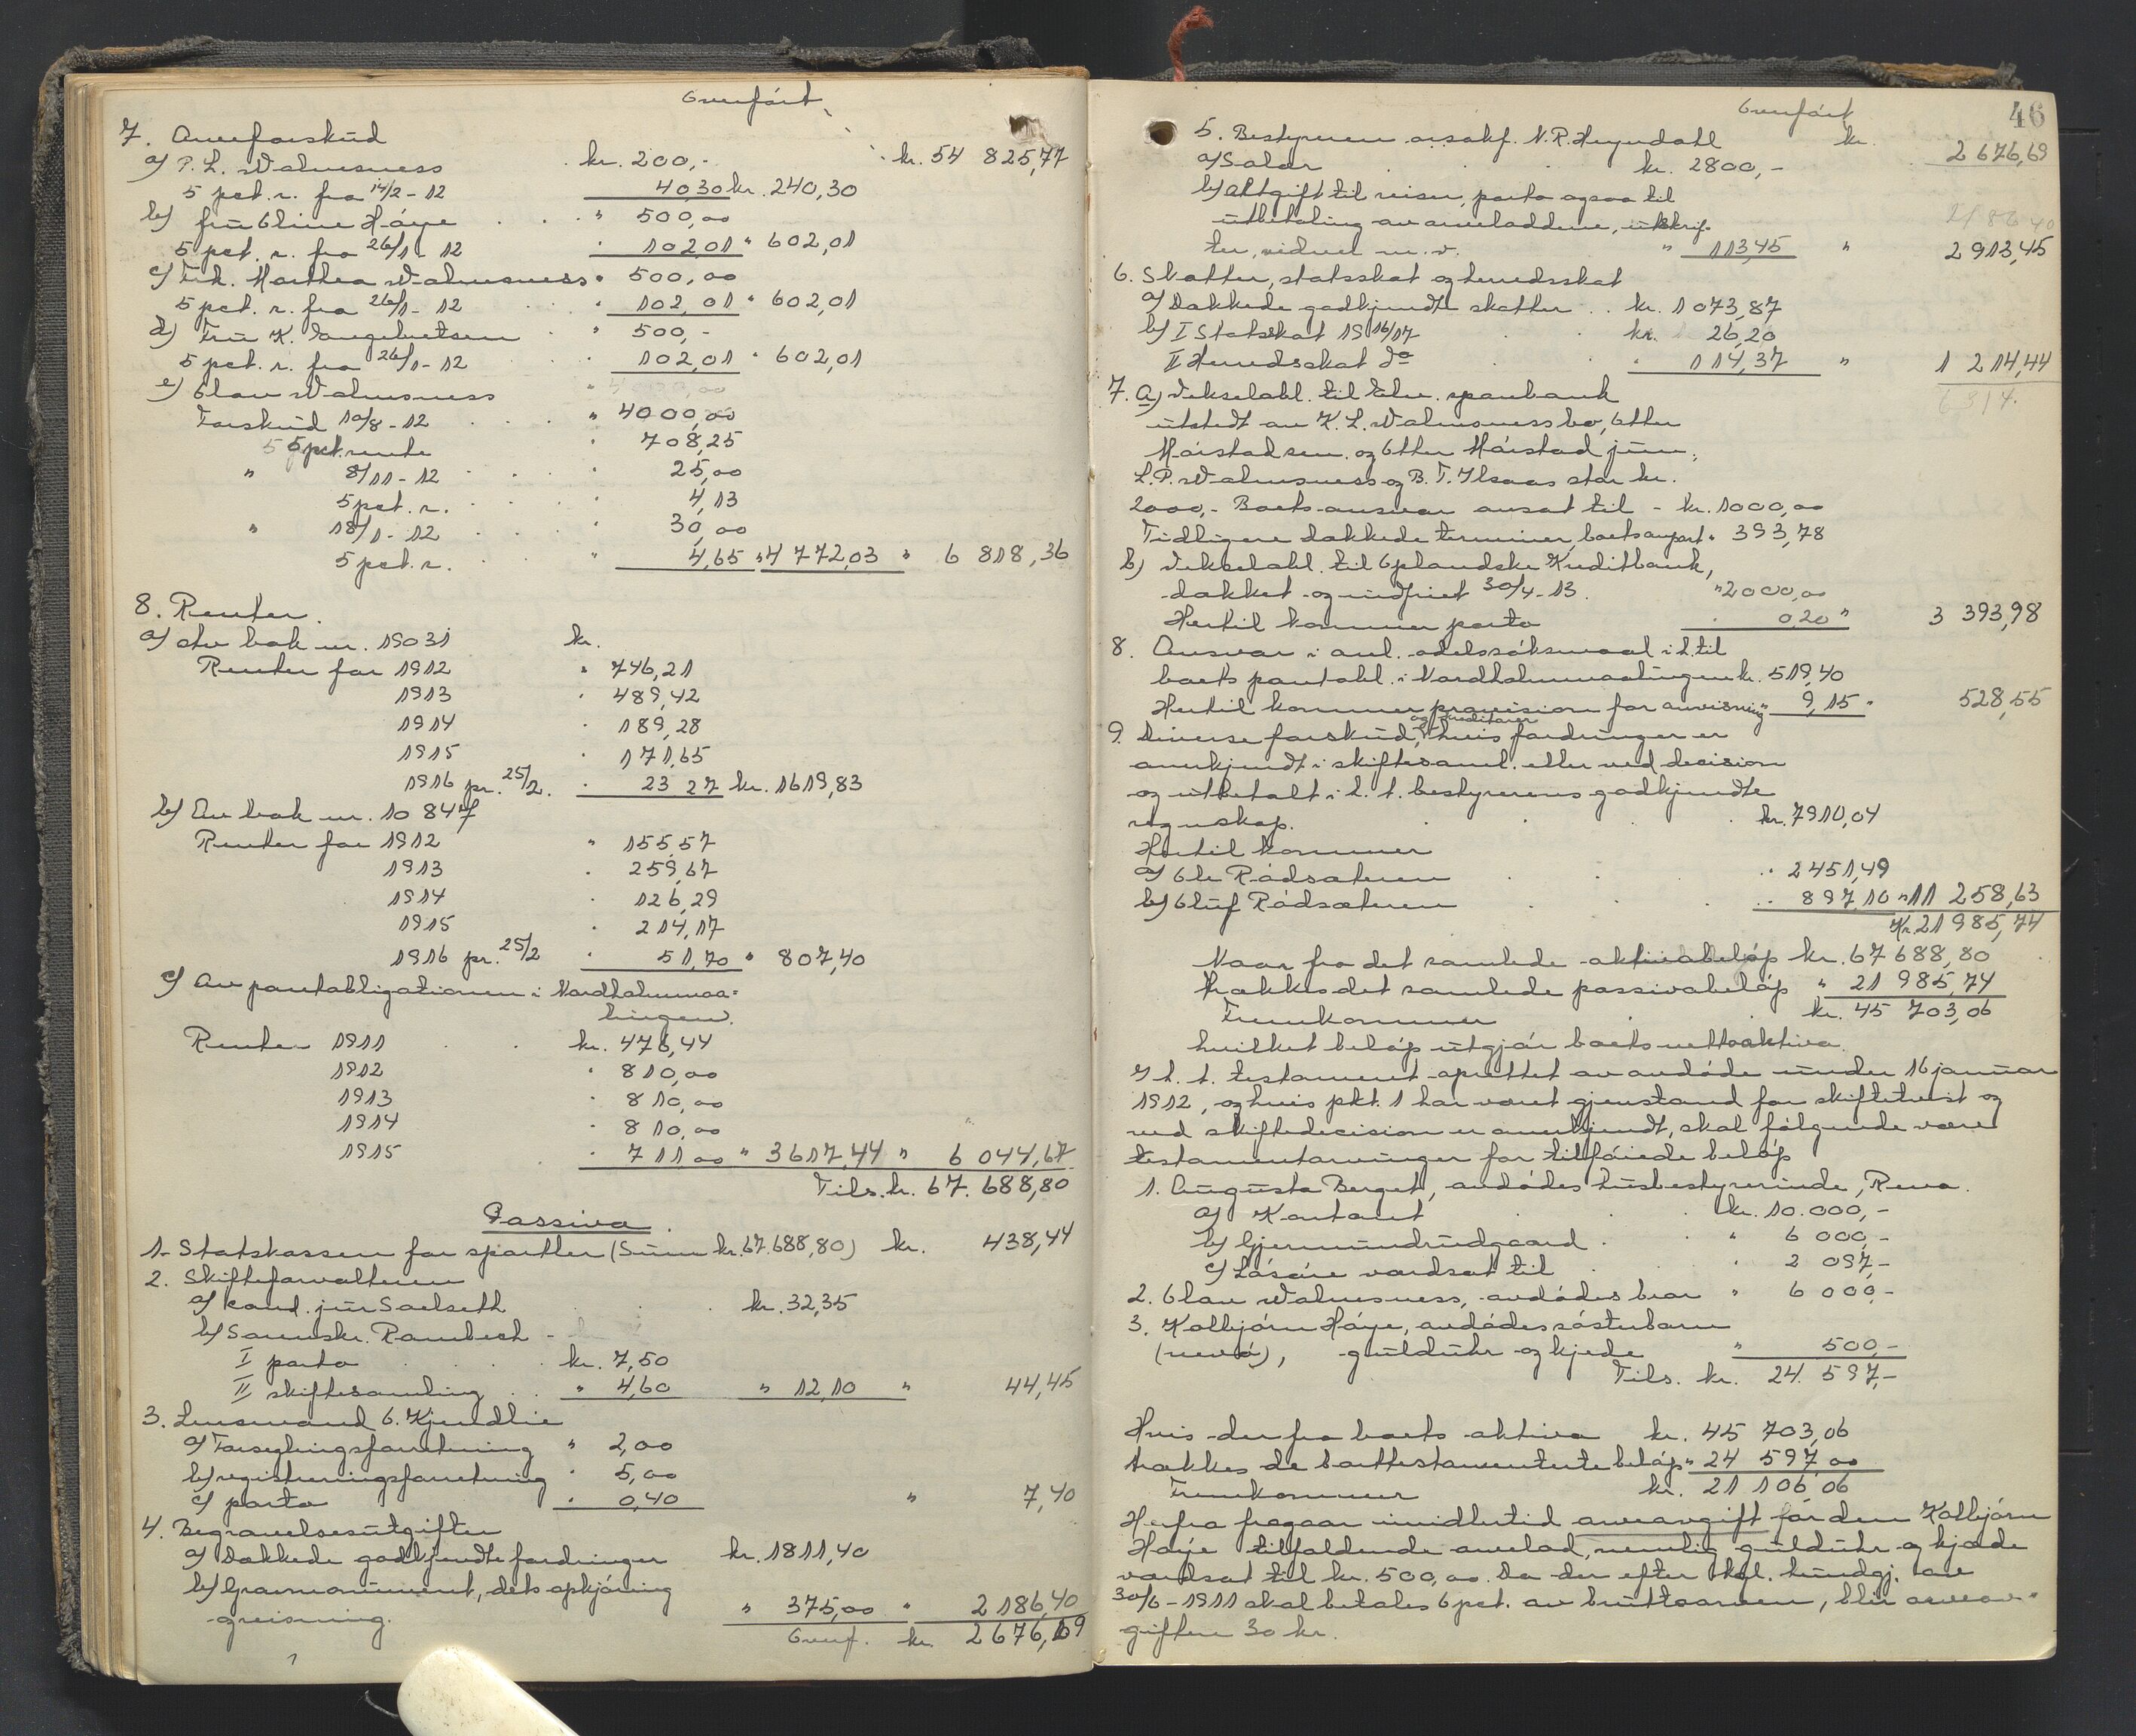 Overført
7. Arveforskud
a) P. L. Valmsness kr. 200,- kr. 54 825,77
5 pct. r. fra 14/2-12 40,30 kr. 240,30
b) fru Oline Høye " 500,00
5 pct. r. fra 26/1-12 " 102,01 " 602,01
c) Frk. Marthea Valmsness " 500,00
5 pct. r. fra 26/1-12 " 102,01 " 602,01
d) Fru K. Engebretsen " 500,-
5 pct. r. fra 26/1-12 102,01 " 602,01
e) Olav Valmsness
Forskud 10/8-12 " 4000,00
5 pct. rente " 708,25
" 8/11-12 " 25,00
5 pct. r. " 4,13
" 18/1-12 " 30,00
5 pct. r. " 4,65 " 4 772,03 " 6 818,36
8. Renter.
a) Av bok nr. 19031 kr.
Renter for 1912 " 746,21
1913 " 489,42
1914 " 189,28
1915 " 171,65
1916 pr. 25/2. " 23 27 kr. 1619,83
b) Av bok nr. 10 847
Renter for 1912 " 155 57
1913 " 259,67
1914 " 126,29
1915 " 214,17
1916 pr. 25/2 " 51,70 " 807,40
c) Av pantobligationen i Nordholmmaa=
lingen.
Renter 1911 kr. 476,44
1912 " 810,00
1913 " 810,00
1914 " 810,00
1915 " 711 00 " 3617,44 " 6 044,67
Tils. kr. 67. 688,80
Passiva.
1. Statskassen for sportler (Sum kr. 67.688,80) kr. 438,44
2. Skifteforvalteren
a) cand. jur Saelseth kr. 32,35
b) Sorenskr. Rambech -
I porto kr. 7,50
II skiftesamling " 4,60 " 12,10 " 44,45
3. Lensmand O. Kjendlie
a) Forseglingsforretning " 2,00
b) registreringsforretning " 5,00
c) porto " 0,40 " 7,40
4. Begravelsesutgifter
a) Dækkede godkjendte fordringer kr. 1811,40
b) Gravmonument, dets opkjøring
-greisning. " 375,00 " 2 186,40
Overf. kr. 2 676,69
46
Overført
5. Bestyreren o.r.sakf. N. R. Heyerdahl kr. 2 676,69
a) Salær kr. 2800,-
b) Utgift til reiser, porto ogsaa til
utbetaling av arveloddene, utskrif-
ter, vidner m. v. " 113,45 " 2 913,45
6. Skatter, statsskat og herredsskat
a) Dækkede godkjendte skatter .. kr. 1 073,87
b) I Statsskat 1916/17 kr. 26,20
II Herredsskat do " 114,37 " 1 214,44
7. a) Vekselobl. til Elv. sparebank
utstedt av K. L. Valmsness bo, Other
Maistad sen. og Other Maistad jun.,
L. P. Valmsness og B. T. Ilsaas stor kr.
2000,- Boets ansvar ansat til - kr. 1000,00
Tidligere dækkede terminer, boets anpart " 393,78
b) Vekselobl. til Oplandske Kreditbank,
dækket og indfriet 30/4-13. " 2000,00
Hertil kommer porto " 0,20 " 3 393,98
8. Ansvar i anl. odelssøksmaal i h. til
boets pantobl. i Nordholmmaalingen kr. 519,40
Hertil kommer provision for anvisning " 9,15 " 528,55
9. Diverse forskud, og kreditorer hvis fordringer er
anerkjendt i skiftesaml. eller ved decision
og utbetalt i h. t. bestyrerens godkjendte
regnskap. kr. 7910,04
Hertil kommer
a) Ole Rådsæteren " 2451,49
b) Oluf Rådsæteren " 897,10 " 11 258,63
Kr. 21 985,74
Naar fra det samlede aktivabeløp kr. 67 688,80
trækkes det samlede passivabeløp " 21 985,74
Fremkommer kr. 45 703,06
hvilket beløp utgjør boets nettoaktiva.
I h. t. testament oprettet av avdøde under 16 januar
1912, og hvis pkt. 1 har været gjenstand for skiftetvist og
ved skiftedecision er anerkjendt, skal følgende være
testamentarvinger for tilføiede beløp
1. Augusta Berget, avdødes husbestyrerinde, Rena.
a) Kontant kr. 10.000,-
b) Gjermundrudgaard " 6 000,-
c) Løsøre værdsat til " 2 097,-
2. Olav Valmsness, avdødes bror " 6 000,-
3. Kolbjørn Høye, avdødes søsterbarn
(nevø), gulduhr og kjede " 500,-
Tils. kr. 24. 597,-
Hvis der fra boets aktiva kr. 45 703,06
trækkes de borttestamenterte beløp " 24 597,00
Fremkommer kr. 21 106,06
Herfra fragaar imidlertid arveavgift for den Kolbjørn
Høye tilfaldende arvelod, nemlig gulduhr og kjæde
værdsat til kr. 500,00. Da der efter kgl. kundgj. av
30/6-1911 skal betales 6 pct. av bruttoarven, blir arveav-
giften 30 kr.